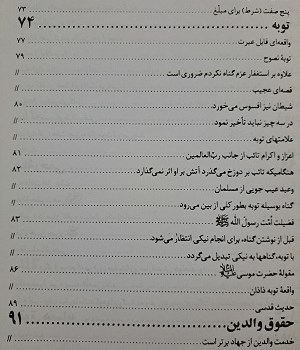 پنج صفت (شرط) برای مبلّغ ۷۳
توبه ۷۴
واقعه‌ای قابل عبرت ۷۷
توبهٔ نصوح ۷۹
علاوه بر استغفار عزم گناه نکردم ضروری است //
قصه‌ای عجیب //
شیطان نیز افسوس می‌خورد. ۸۰
در سه چیز نباید تأخیر نمود. //
علامتهای توبه //
اعزاز و اکرام تائب از جانب ربّ‌العالمین ۸۱
هنگامیکه تائب بر دوزخ می‌گذرد آتش بر او اثر نمی‌گذارد. ۸۲
وعید عیب جویی از مسلمان //
گناه بوسیله توبه بطور کلی از بین می‌رود. //
فضیلت اُمّت رسولُ اللّه ﷺ ۸۳
قبل از نوشتن گناه، برای انجام نیکی انتظار می‌شود. //
با توبه، گناهها به نیکی تبدیل می‌گردد //
مقولهٔ حضرت موسی ۸۶
واقعهٔ توبه ذاذان //
حدیث قدسی ۸۹
حقوق والدین ۹۱
خدمت والدین از جهاد برتر است. //